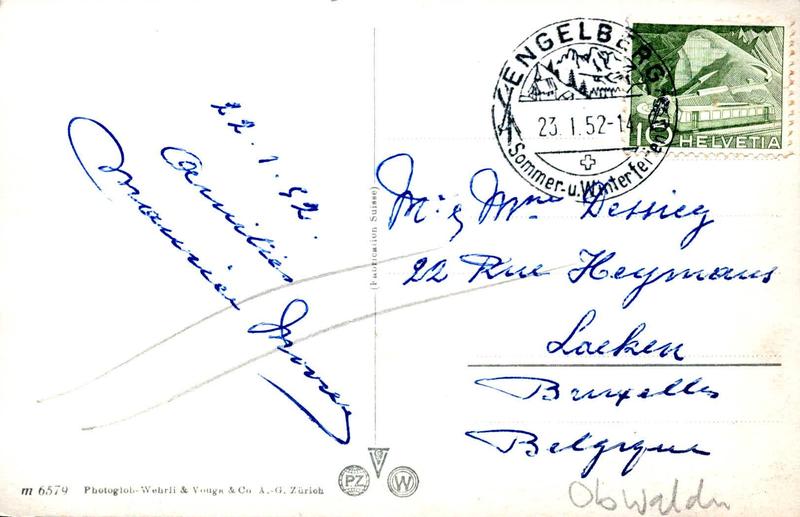 22.1.52.
Amitiés
Maurice
(Fabrication Suisse)
ENGELBERG
23.1.52-14
Sommer-u. Winterferien
10
HELVETIA
Mr & Mme Dessicy
22 Rue Heymans
Laeken
Bruxelles
Belgique
PZ
W
m 6579 Photoglob-Wehrli & Vouga & Co A.-G. Zürich
Obwalden